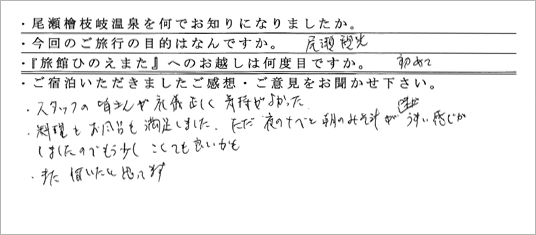 ・尾瀬檜枝岐温泉を何でお知りになりましたか。
・今回のご旅行の目的はなんですか。 尾瀬観光
・『旅館ひのえまた』へのお越しは何度目ですか。 初めて
・ご宿泊いただきましたご感想・ご意見をお聞かせ下さい。
・スタッフの皆さんが礼儀正しく気持がよかった
・料理もお風呂も満足しました。ただ夜のなべと朝のみそ汁がうすい感じが
しましたのでもう少しこくても良いかも
・また 伺いたいと思ってます